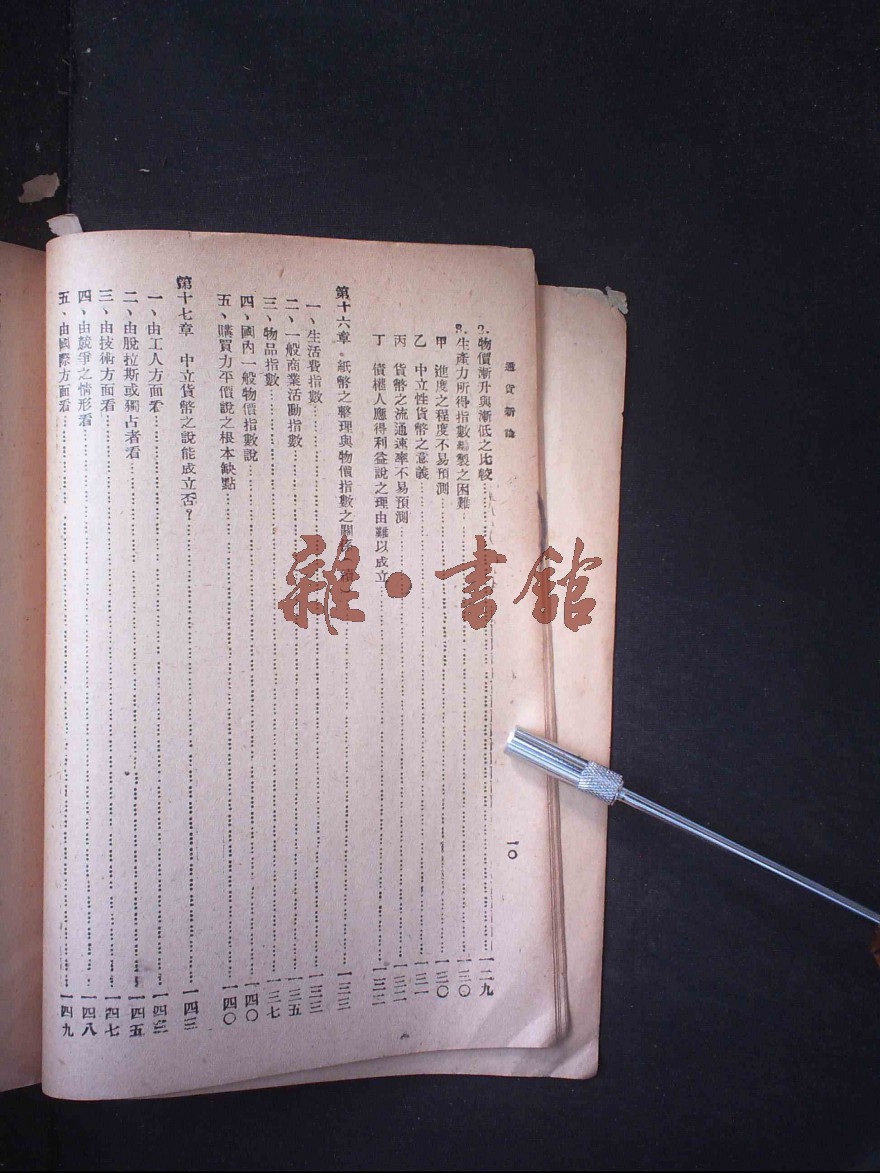 通貨新論
一〇
2.物價漸升與漸低之比較 一二九
3.生產力所得指數編製之困難 一三〇
甲 進度之程度不易預測 一三〇
乙 中立性貨幣之意義 一三一
丙 貨幣之流通速率不易預測
丁 債權人應得利益說之理由難以成立
第十六章 紙幣之整理與物價指數之關係 一三三
一、生活費指數 一三三
二、一般商業活動指數 一三五
三、物品指數 一三七
四、國內一般物價指數說 一四〇
五、購買力平價說之根本缺點 一四〇
第十七章 中立貨幣之說能成立否？ 一四三
一、由工人方面看 一四三
二、由脫拉斯或獨占者看 一四五
三、由技術方面看 一四七
四、由競爭之情形看 一四八
五、由國際方面看 一四九
雜·書館